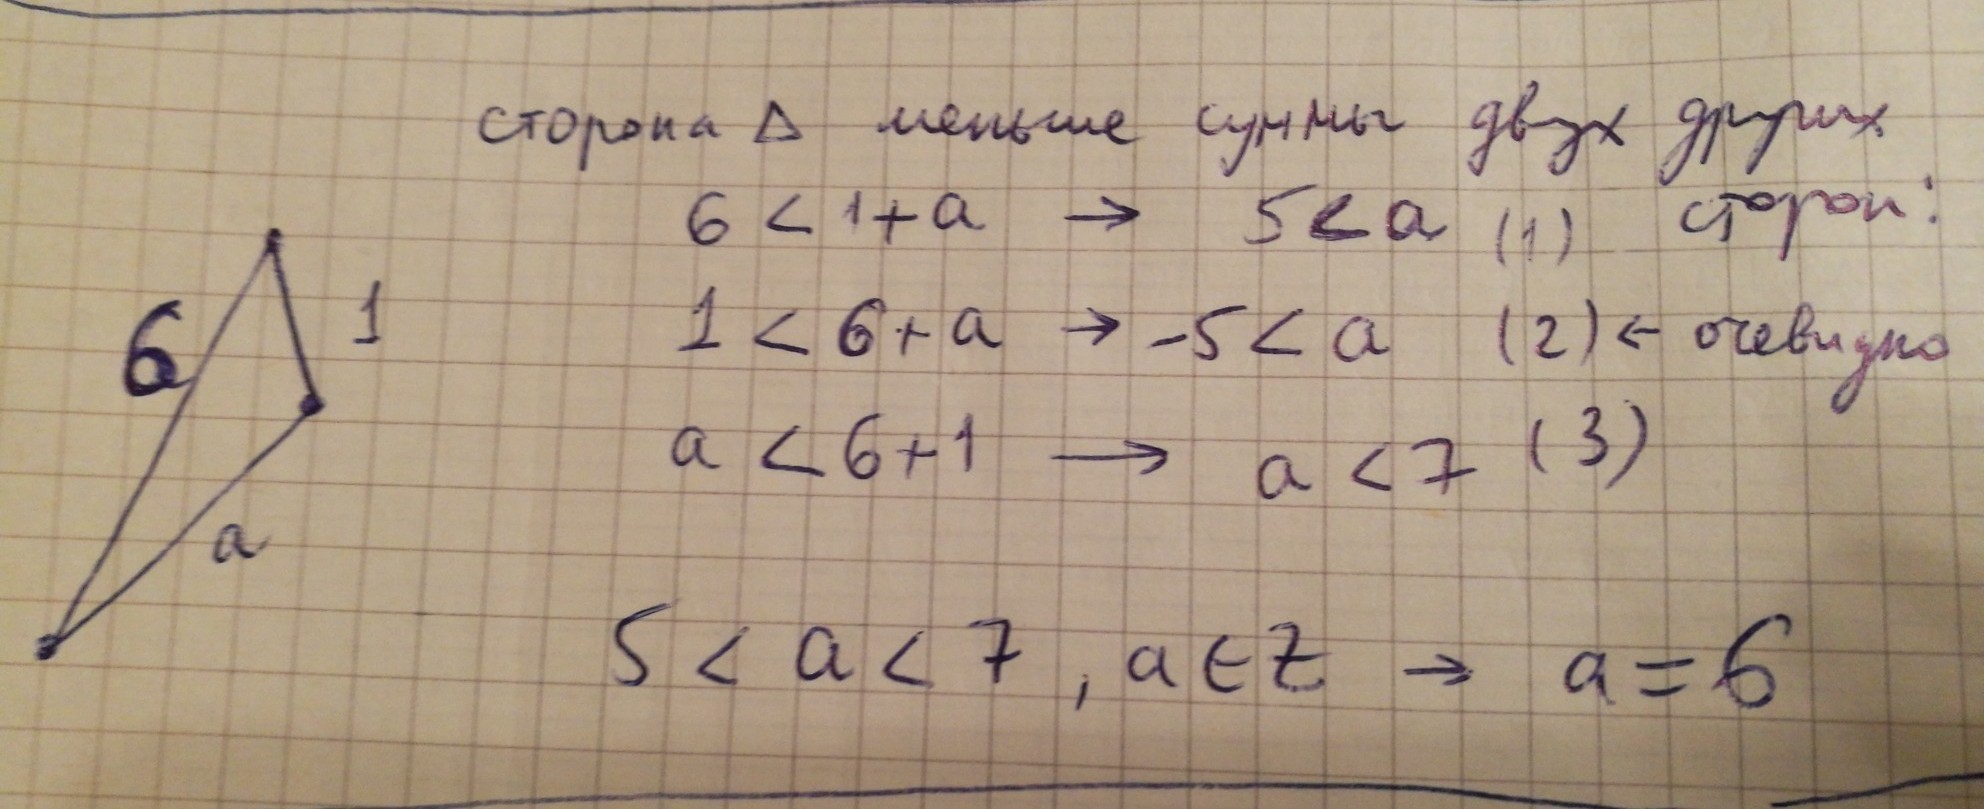 сторона Δ меньше суммы двух других
6 < 1 + a → 5 < a (1) сторон:
1 < 6 + a → -5 < a (2) ← очевидно
a < 6 + 1 → a < 7 (3)
5 < a < 7, a ∈ Z → a = 6
6
1
a